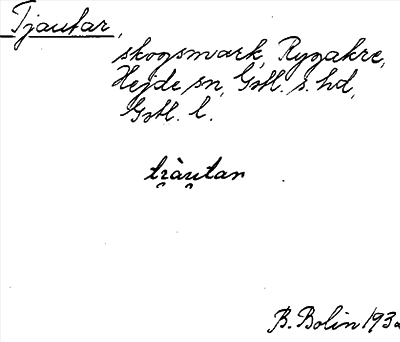 Tjautar,
skogsmark, Rygakre,
Hejde sn, Gotl. s. hd,
Gotl. l.
tràu̯tan
B. Bolin 193